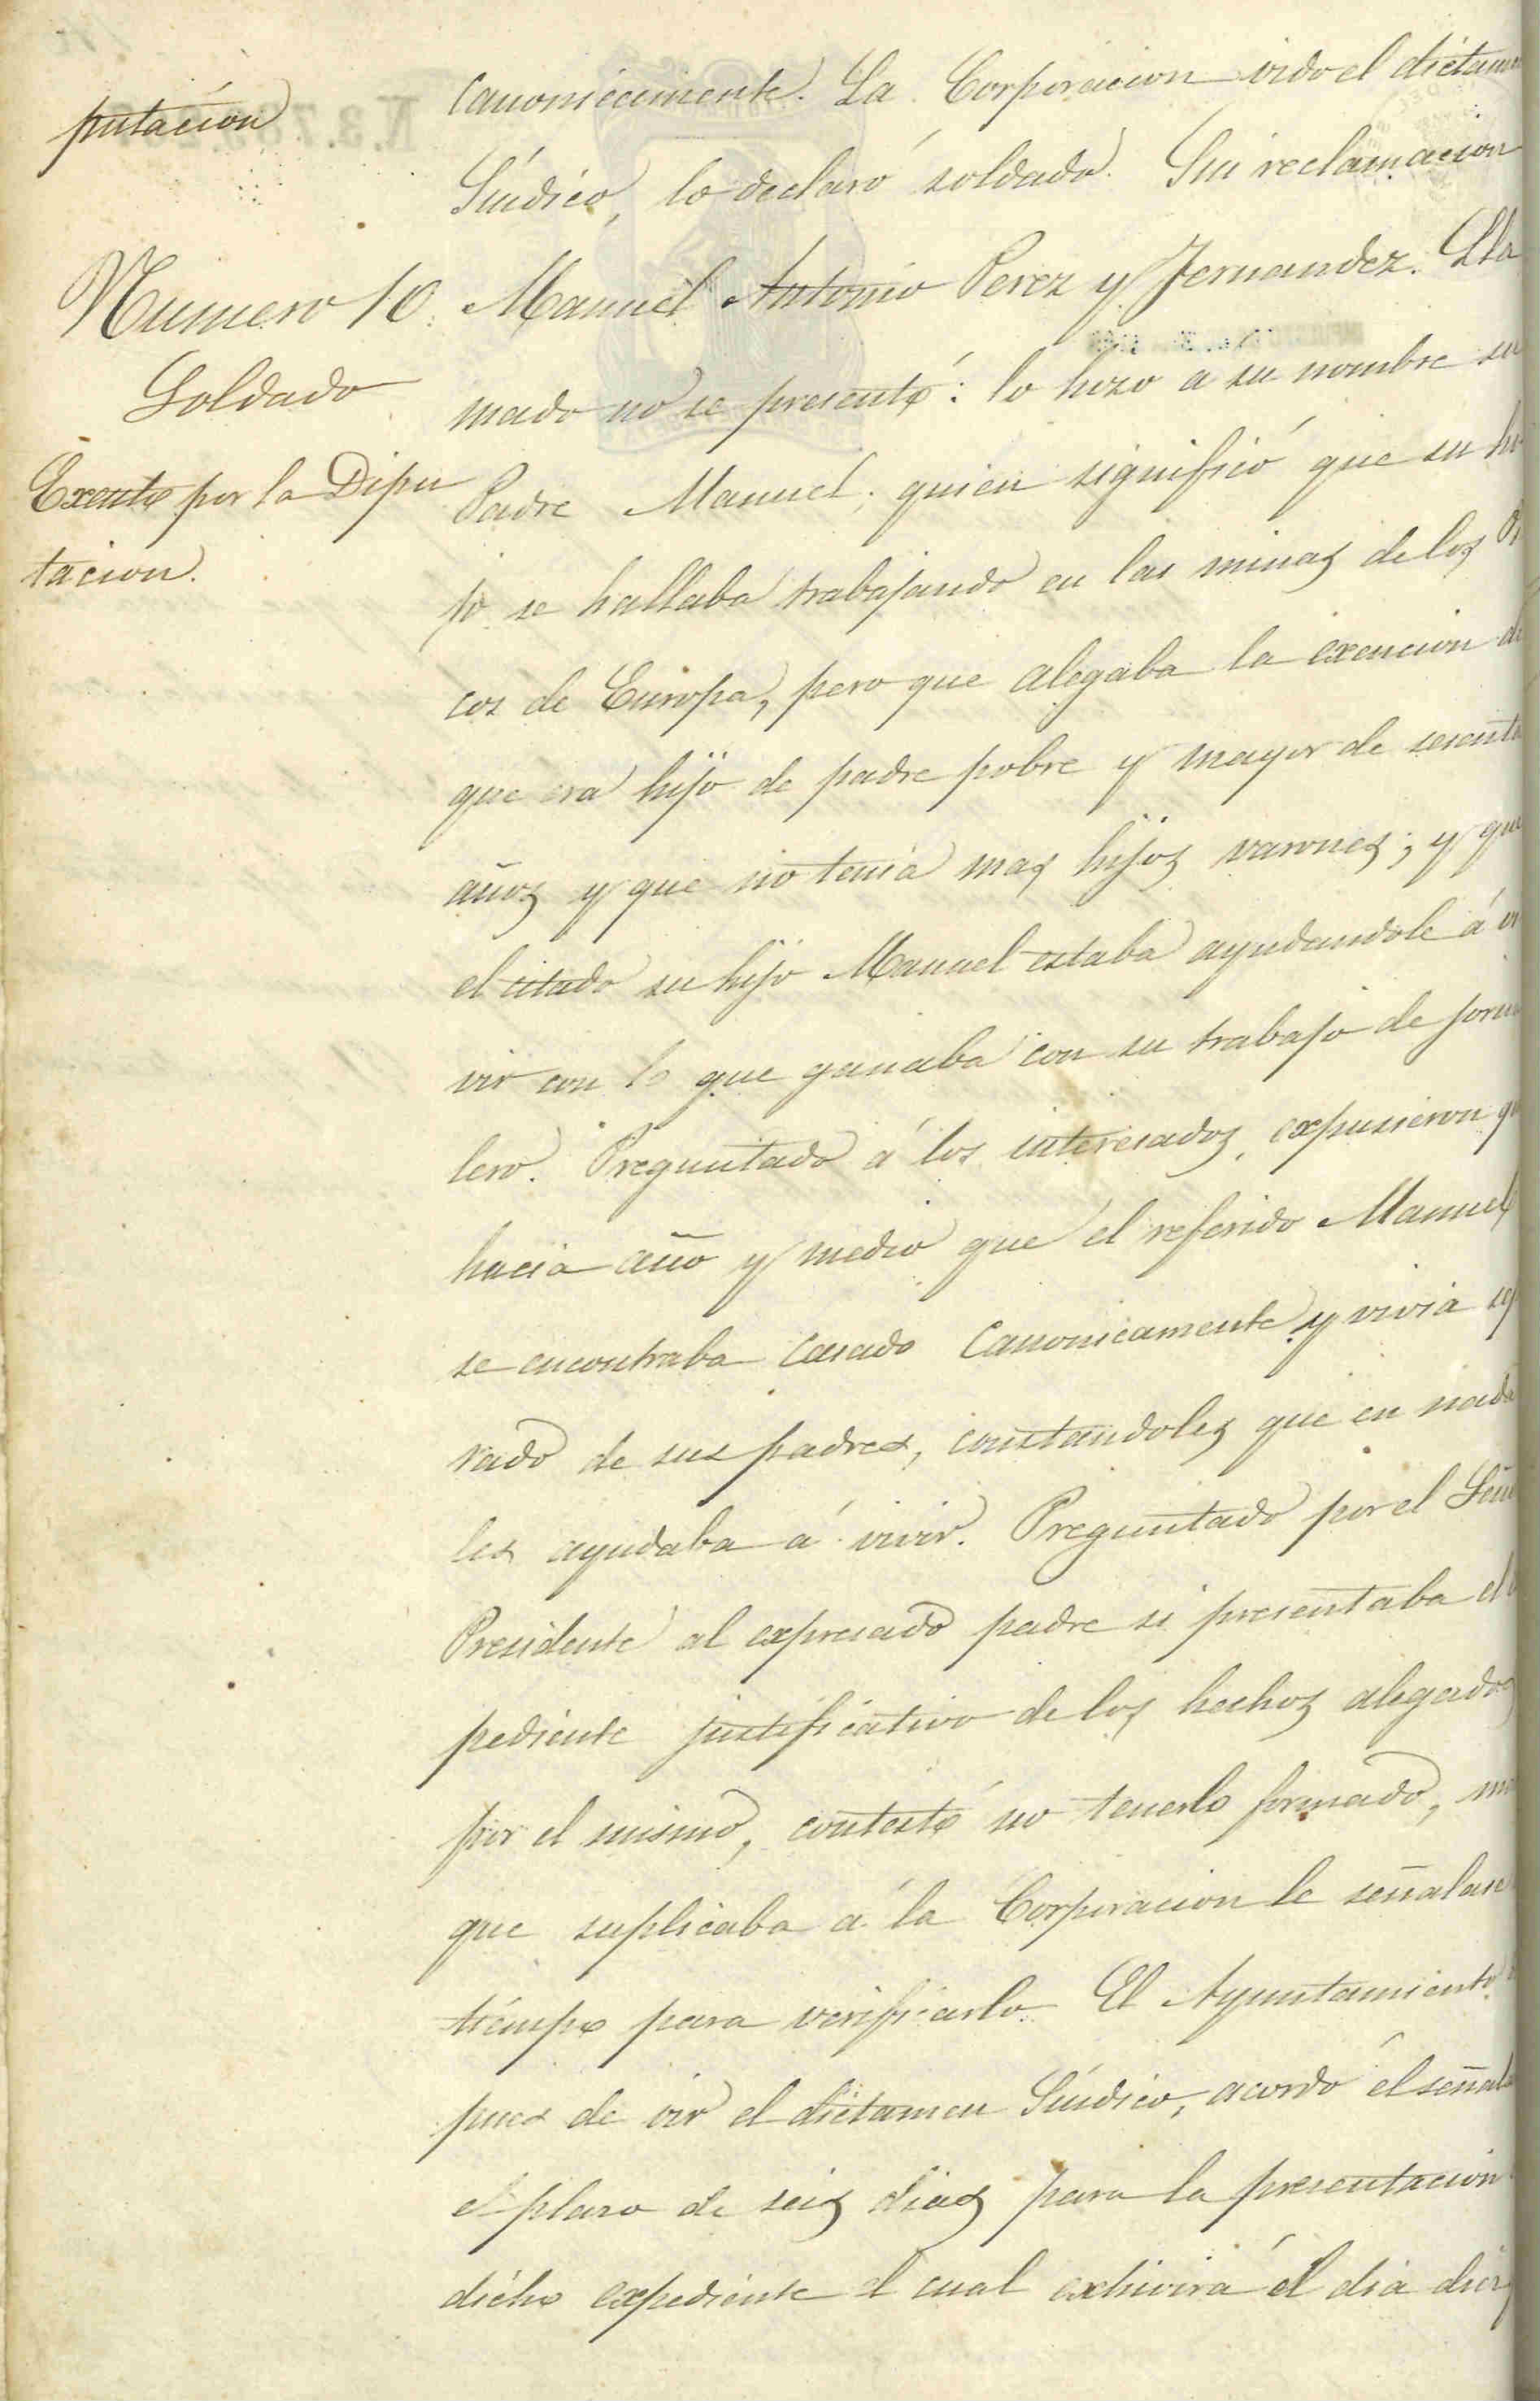 putacion
Canonicamente. La Corporacion oido el dictamen
Síndico, lo declaró soldado. Sin reclamacion
Numero 10.
Soldado
Exento por la Dipu
tacion.
Manuel Antonio Perez y Fernandez. Lla
mado no se presentó: lo hizo a su nombre su
Padre Manuel; quien significó que su hi
jo se hallaba trabajando en las minas de los Pi
cos de Europa, pero que alegaba la exencion de
que era hijo de padre pobre y mayor de sesenta
años y que no tenia mas hijos varones; y que
el citado su hijo Manuel estaba ayudandole á vi
vir con lo que ganaba con su trabajo de jorna
lero. Preguntado á los interesados, expusieron que
hacia año y medio que el referido Manuel
se encontraba casado Canonicamente y vivia sepa
rado de sus padres, constandoles que en nada
les ayudaba á vivir. Preguntado por el Señor
Presidente al expresado padre si presentaba el
pediente justificativo de los hechos alegados
por el mismo, contestó no tenerlo formado, mas
que suplicaba á la Corporacion le señalase
tiempo para verificarlo. El Ayuntamiento
pues de oir el dictamen Síndico, acordó el señala
el plazo de seis dias para la presentacion
dicho expediente el cual exhivirá el dia diez